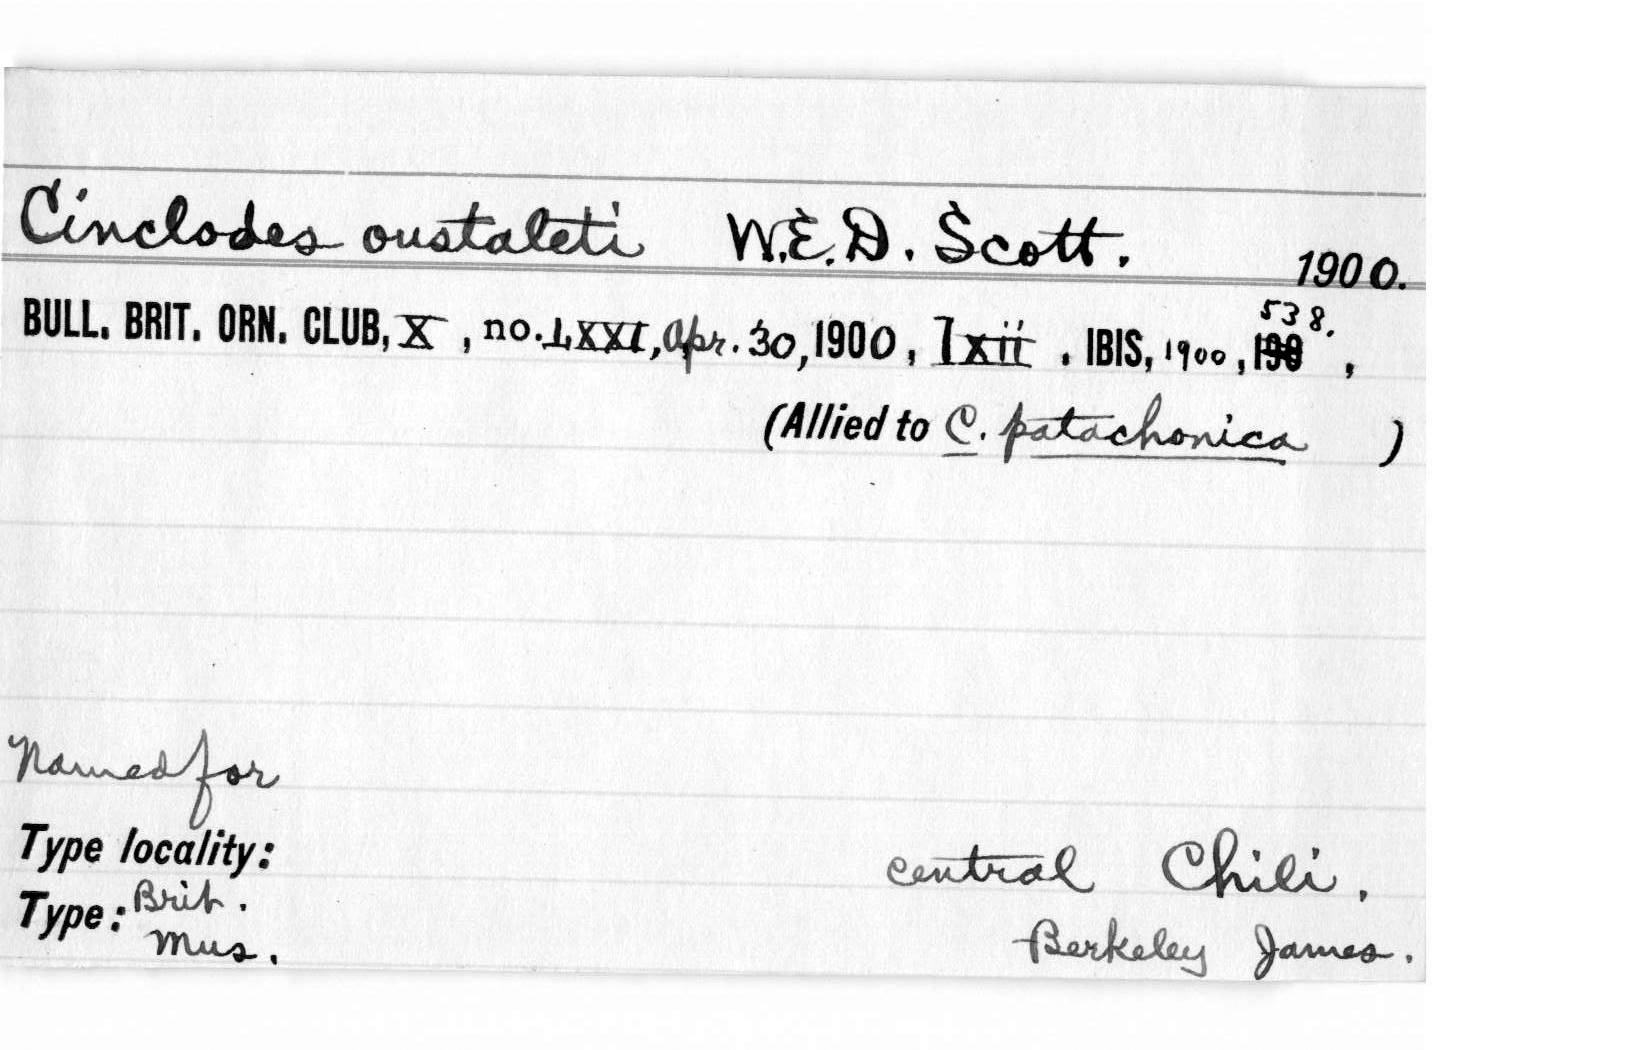 Cinclodes oustaleti W.E.D. Scott. 1900.
538.
BULL. BRIT. ORN. CLUB, X, no. LXXI, Apr. 30, 1900, lxii. IBIS, 1900, 190,
(Allied to C. patachonica)
Named for
Type locality: central Chili.
Type: Brit. Mus. Berkeley James.